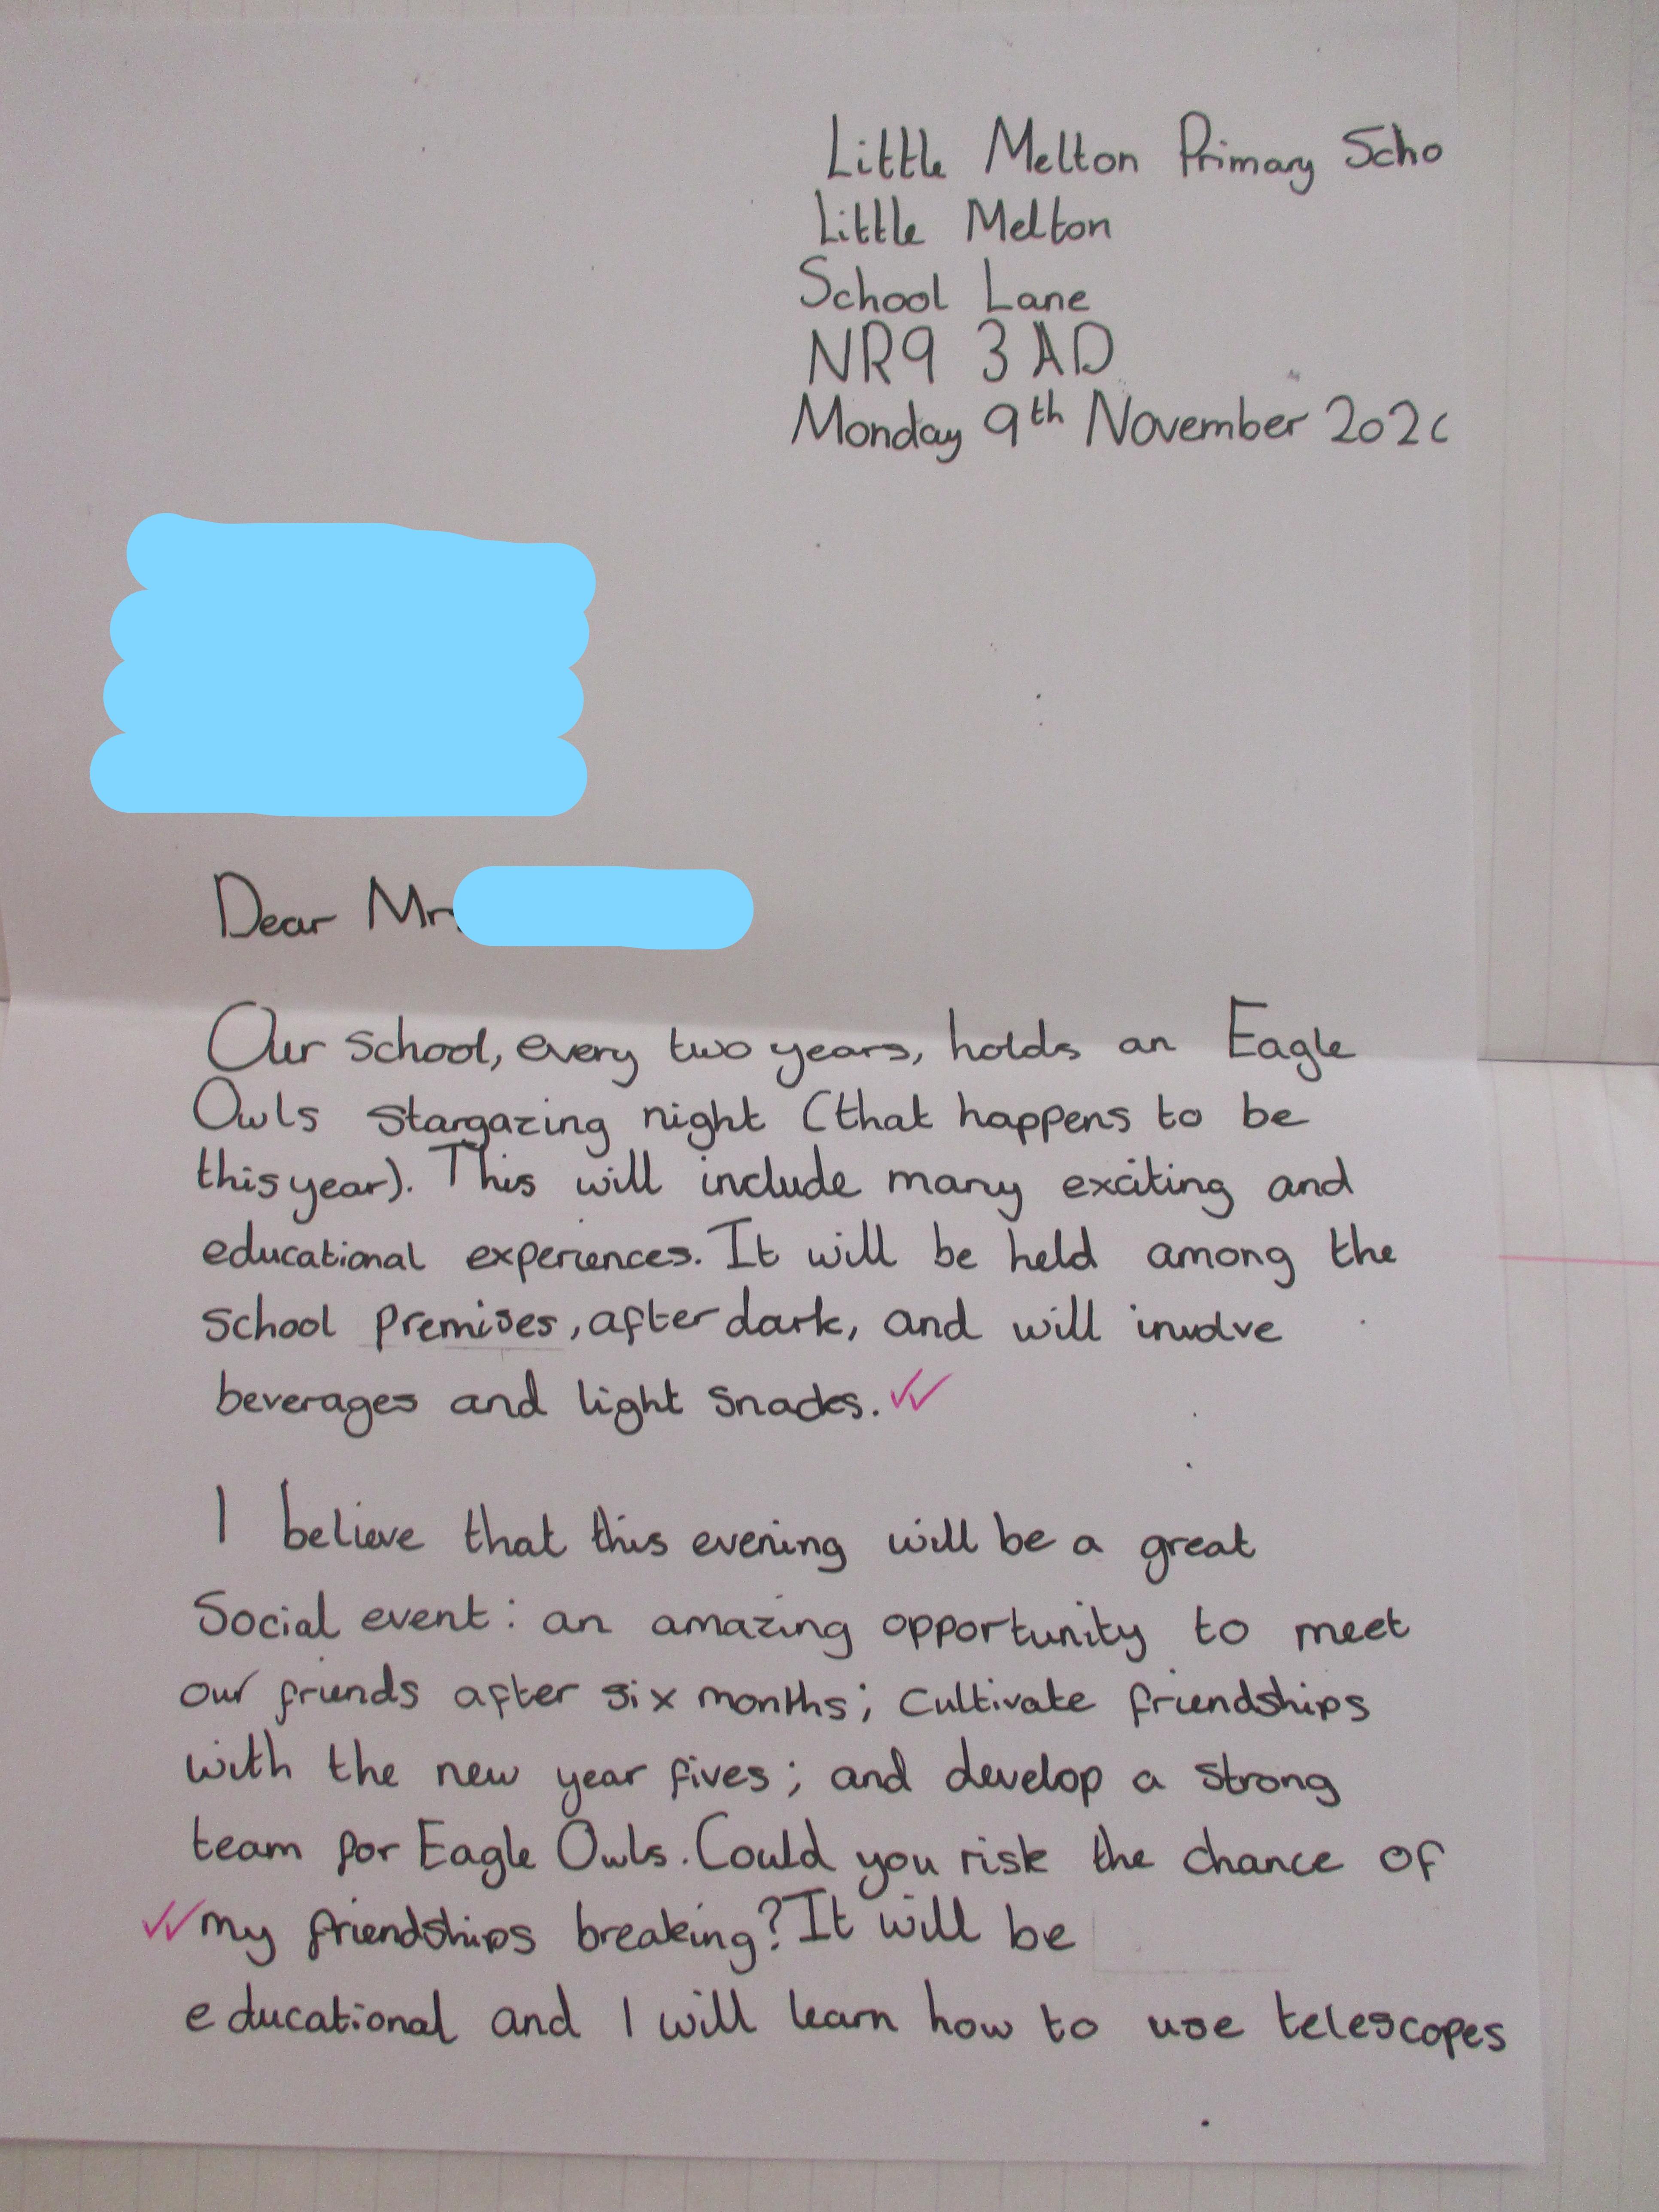 Little Melton Primary Scho
Little Melton
School Lane
NR9 3AD
Monday 9th November 202
Dear Mr
Our school, every two years, holds an Eagle
Owls stargazing night (that happens to be
this year). This will include many exciting and
educational experiences. It will be held among the
school premises, after dark, and will involve
beverages and light snacks.
I believe that this evening will be a great
Social event: an amazing opportunity to meet
our friends after six months; cultivate friendships
with the new year fives; and develop a strong
team for Eagle Owls. Could you risk the chance of
my friendships breaking? It will be
educational and I will learn how to use telescopes